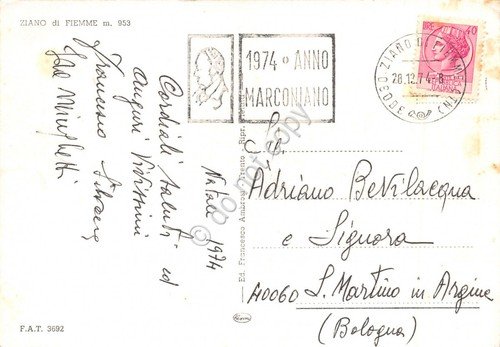 ZIANO di FIEMME m. 953
Cordiali saluti ed
Auguri Vivissimi
Francesco Silvana
Natale 1974
1974 - ANNO
MARCONIANO
LIRE 40
38030 ZIANO DI FIEMME (TN)
28.12.74-8
Ed. Francesco Ambrosi
do not copy
Sig.
Adriano Bevilacqua
e Signora
40060 S. Martino in Argine
(Bologna)
F.A.T. 3692